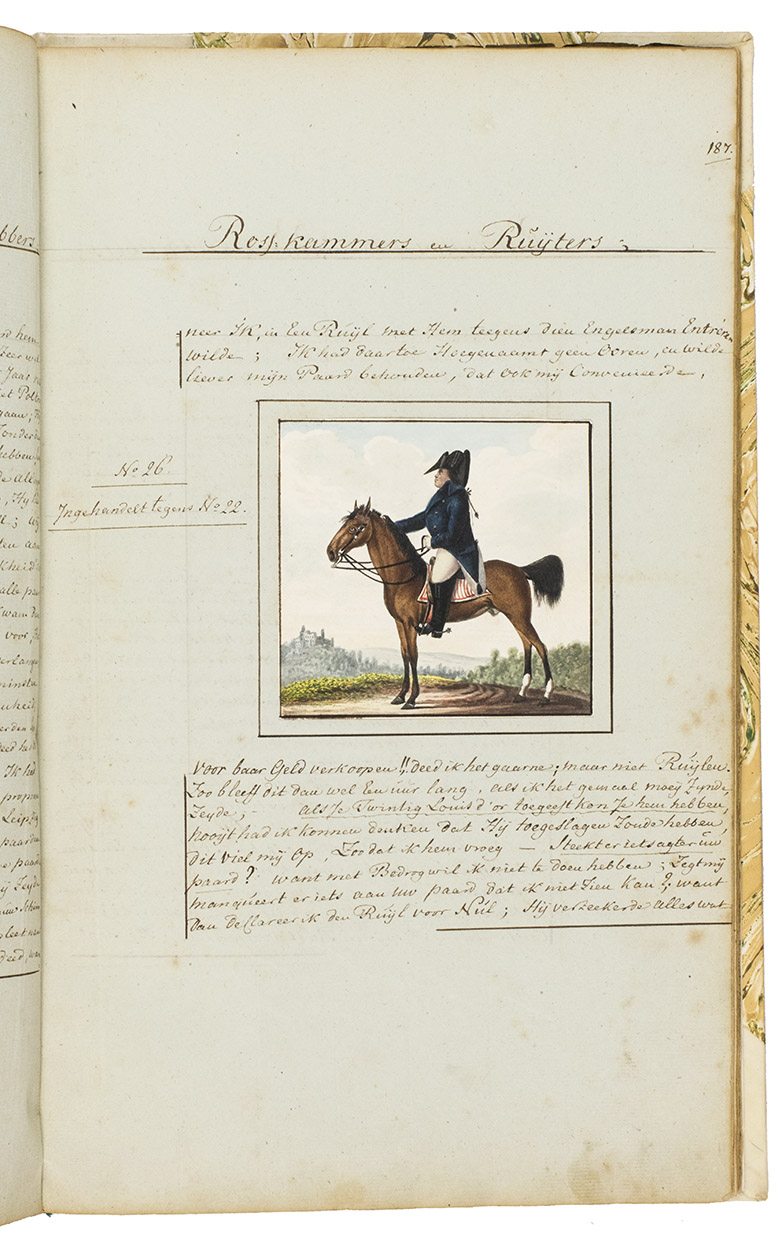 187.
Rossz kammers en Ruÿters ;
neer Ik, in Een Ruÿl met Hem teegens dien Engelsman Entréren
wilde ; Ik had daartoe Hoegenaamt geen ooren, en wilde
liever mijn Paard behouden, dat ook mij Convenieerde,
No 26.
Ingehandelt tegens No 22.
Voor baar Geld verkoopen !! Deed ik het gaarne ; maar niet Ruÿlen.
Zoo bleeff dit dan wel Een uur lang, als ik het gemaal moeÿ Zynde
Zeyde ; - als Je Twintig Louis d'or toegeeft kon Je hem hebben,
nooÿt had ik konnen denken dat Hij toegeslagen Zoude hebben,
Dit viel mij Op, Zoo dat ik hem vroeg — Steekt er iets agter uw
paard ? want met Bedrog wil ik niet te doen hebben ; Zegt mij
manqueert er iets aan uw paard dat ik niet Zien kan ?, want
Dan DeClareer ik den Ruÿl voor Nul ; Hij verzeekerde alles wat
bbers